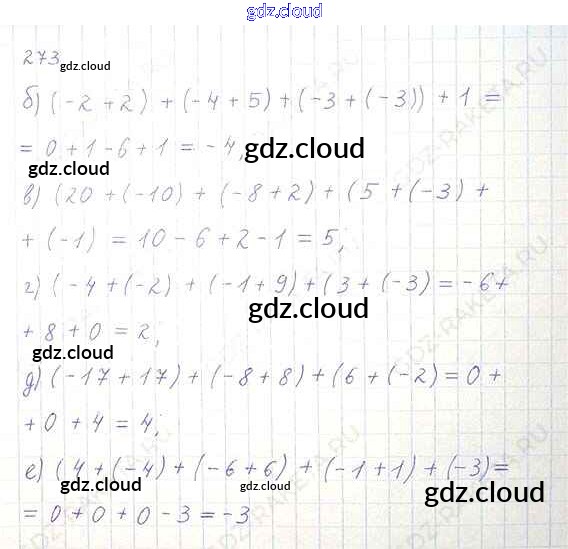 gdz.cloud
273 gdz.cloud
б) (-2 + 2) + (-4 + 5) + (-3 + (-3)) + 1 =
= 0 + 1 - 6 + 1 = -4, gdz.cloud
gdz.cloud
в) (20 + (-10) + (-8 + 2) + (5 + (-3) +
+ (-1) = 10 - 6 + 2 - 1 = 5;
г) (-4 + (-2) + (-1 + 9) + (3 + (-3) = -6 +
gdz.cloud
+ 8 + 0 = 2;
gdz.cloud
д) (-17 + 17) + (-8 + 8) + (6 + (-2) = 0 +
+ 0 + 4 = 4;
е) (4 + (-4) + (-6 + 6) + (-1 + 1) + (-3) =
gdz.cloud gdz.cloud gdz.cloud
= 0 + 0 + 0 - 3 = -3
GDZ-RAKETA.RU